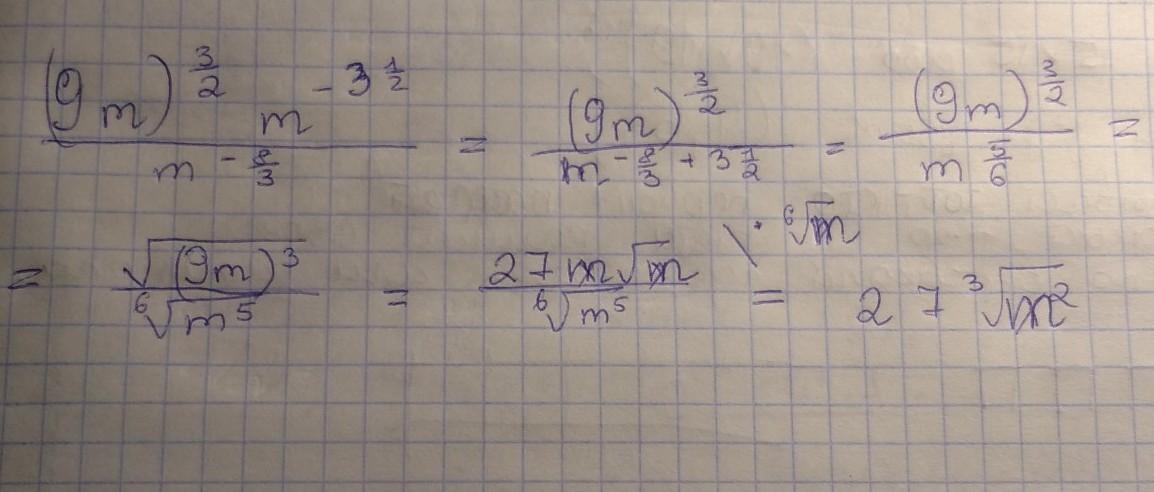 (9m)^{3/2} m^{-3 1/2} / m^{-8/3} = (9m)^{3/2} / m^{-8/3 + 3 1/2} = (9m)^{3/2} / m^{5/6} =
= √(9m)³ / ⁶√m⁵ = 27m√m / ⁶√m⁵ \· ⁶√m = 27 ³√m²